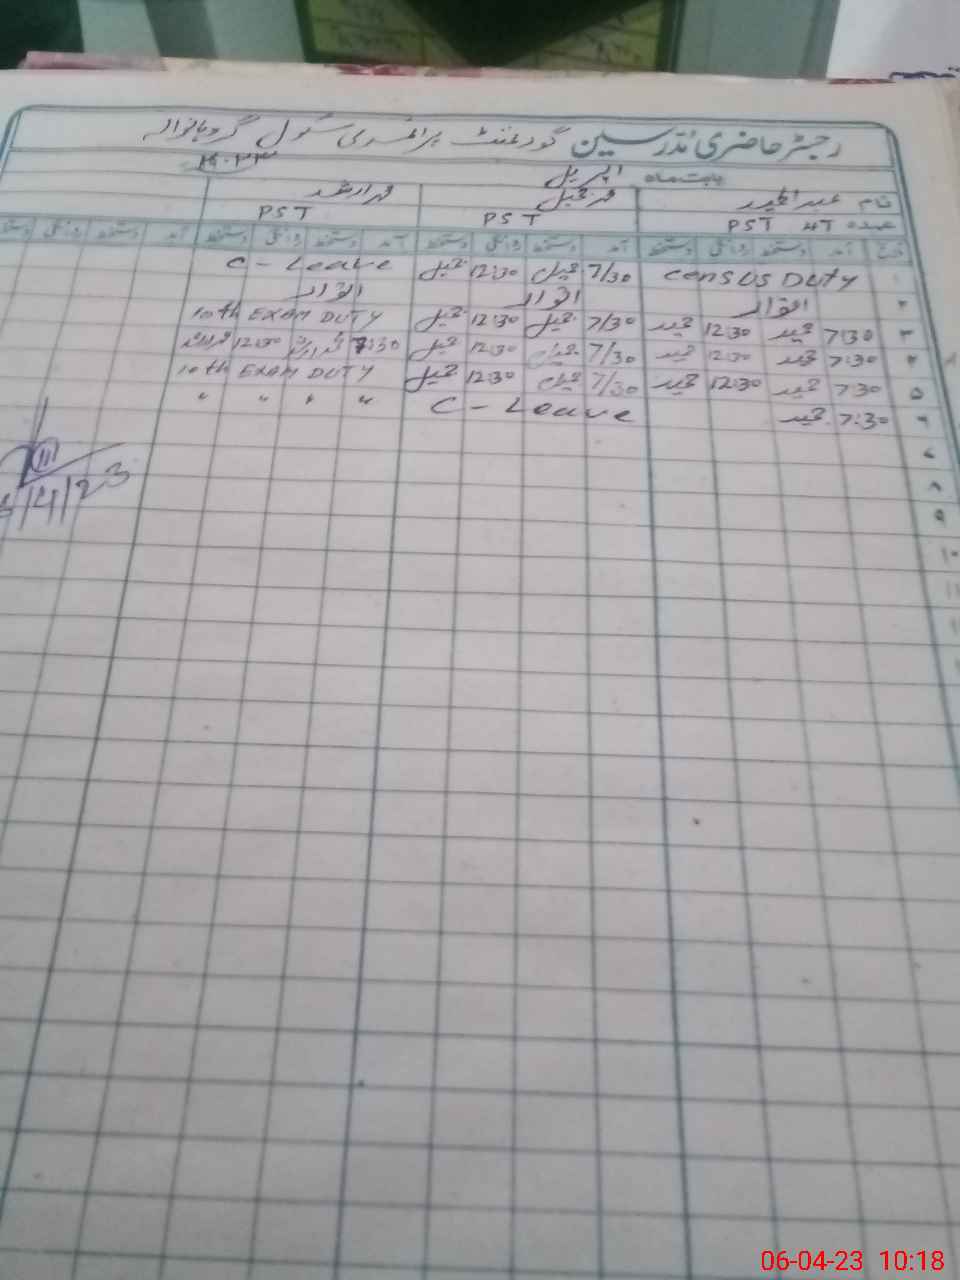 رجسٹر حاضری مدرسین گورنمنٹ پرائمری سکول
بابت ماہ اپریل ۲۰۲۳
نام عبدالحمید محمد جمیل محمد ارشد
عہدہ PST HT PST PST
تاریخ آمد دستخط روانگی دستخط آمد دستخط روانگی دستخط آمد دستخط روانگی دستخط آمد دستخط روانگی دستخط
۱ CENSUS DUTY 7/30 جمیل 12:30 جمیل C - Leave
۲ اتوار اتوار اتوار
۳ 7:30 حمید 12:30 حمید 7/30 جمیل 12:30 جمیل 10th EXAM DUTY
۴ 7:30 حمید 12:30 حمید 7/30 جمیل 12:30 جمیل 7:30 محمد ارشد 12:30 محمد ارشد
۵ 7:30 حمید 12:30 حمید 7/30 جمیل 12:30 جمیل 10th EXAM DUTY
۶ 7:30 حمید C - Leave " " " "
۷
۸
۹
۱۰
۱۱
/4/23
06-04-23 10:18